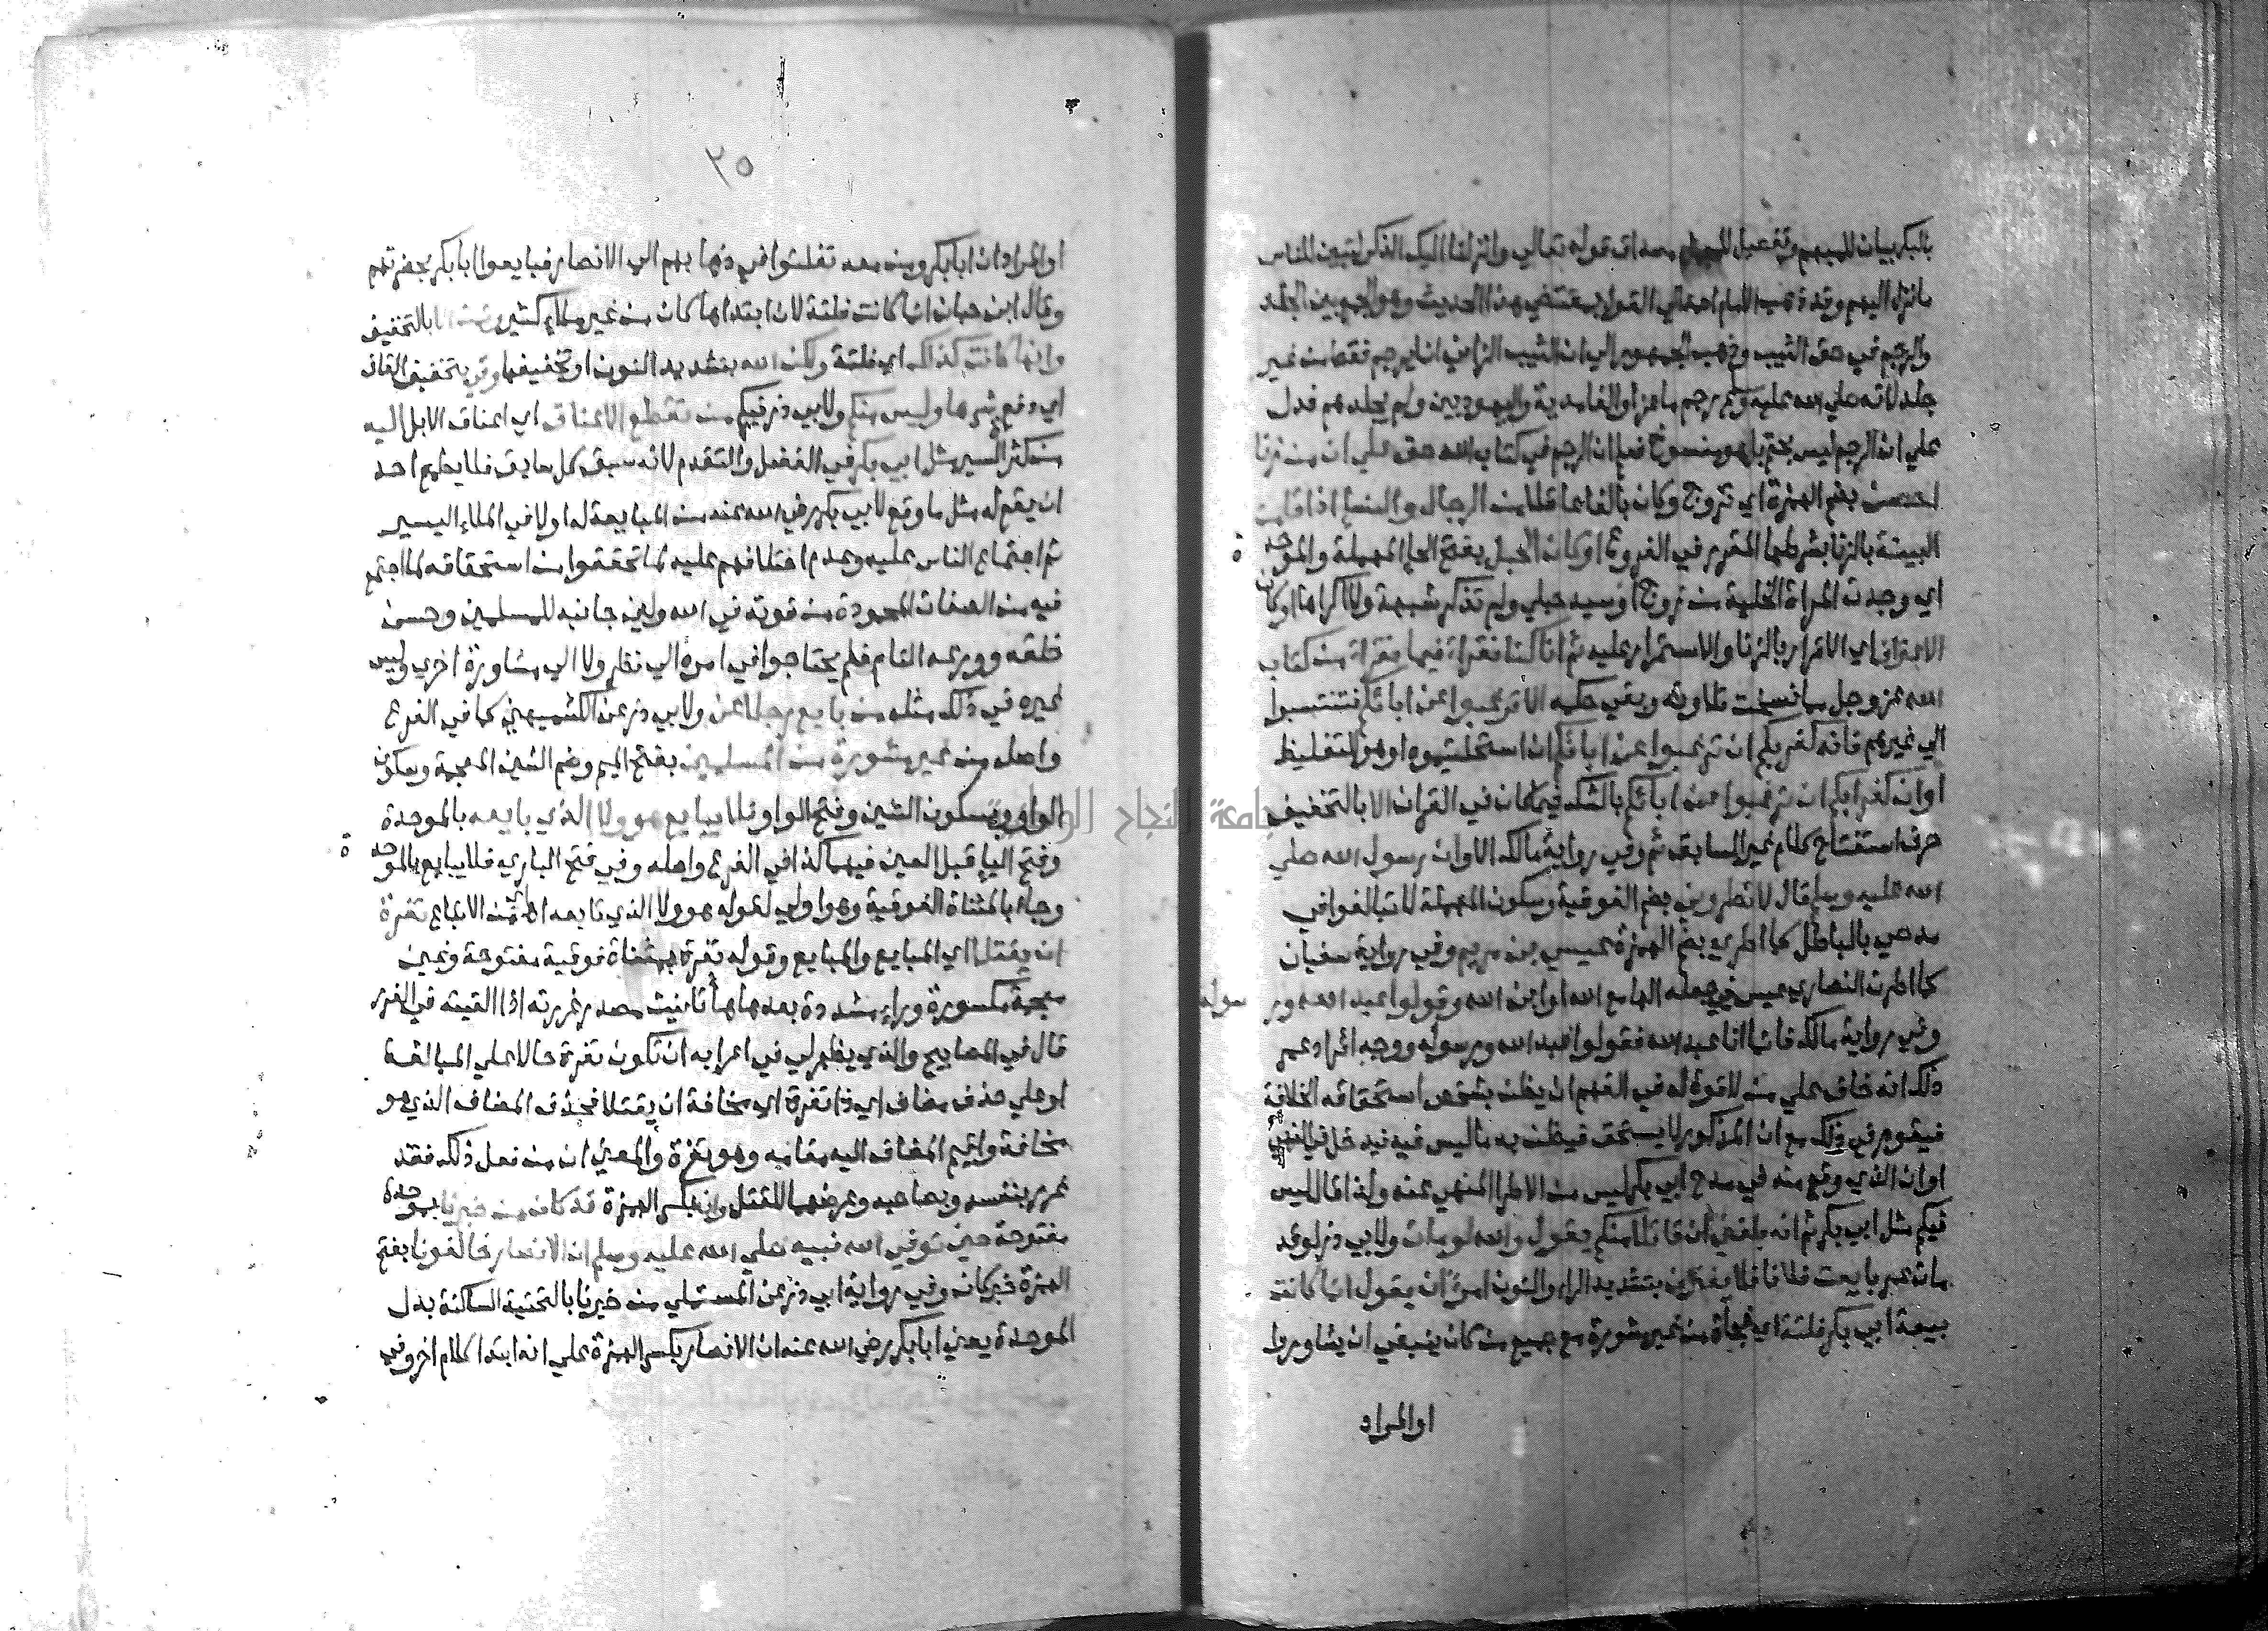 بالبكر بيان للمبهم وتفصيل للمجمل مصداق قوله تعالى وانزلنا اليك الذكر لتبين للناس
ما نزل اليهم وقد ذهب الامام احمد الي القول بمقتضي هذا الحديث وهو الجمع بين الجلد
والرجم في حق الثيب وذهب الجمهور الي ان الثيب الزاني انما يرجم فقط من غير
جلد لانه صلي الله عليه وسلم رجم ماعزا والغامدية واليهوديين ولم يجلدهم فدل
علي ان الرجم ليس بحتم بل هو منسوخ فعلم ان الرجم في كتاب الله حق علي ان من زنا
احصن بضم الهمزة اي تزوج وكان بالغا عاقلا من الرجال والنساء اذا قامت
البينة بالزنا بشرطها المقرر في الفروع او كان الحبل بفتح الحاء المهملة والموحدة
اي وجدت المراة الخلية من زوج او سيد حبلي ولم تذكر شبهة ولا اكراها او كان
الاعتراف اي الاقرار بالزنا والاستمرار عليه ثم انا كنا نقراه فيما نقراه من كتاب
الله عز وجل مما نسخت تلاوته وبقي حكمه الا ترغبوا عن ابائكم فتنتسبوا
الي غيرهم فانه كفر بكم ان ترغبوا عن ابائكم ان استحللتموه او هو للتغليظ
او ان كفرا بكم ان ترغبوا عن ابائكم بالشك فيما كان في القران الا بالتخفيف
حرف استفتاح كلام غير السابق ثم وفي رواية مالك الا وان رسول الله صلي
الله عليه وسلم قال لا تطروني بضم الفوقية وسكون المهملة لا تبالغوا في
مدحي بالباطل كما اطري بضم الهمزة عيسي بن مريم وفي رواية سفيان
كما اطرت النصاري عيسي في جعله الها مع الله او ابن الله وقولوا عبد الله ورسوله
وفي رواية مالك فانما انا عبد الله فقولوا عبد الله ورسوله ووجه ايراد عمر
ذلك انه خاف علي من لا قوة له في الفهم ان يظن بشخص استحقاقه الخلافة
فيقوم في ذلك مع ان المذكور لا يستحق فيظن به ما ليس فيه فيدخل في النهي
او ان الذي وقع منه في مدح ابي بكر ليس من الاطراء المنهي عنه ولذا قال ليس
فيكم مثل ابي بكر ثم انه بلغني ان قائلا منكم يقول والله لو مات ولابي ذر لو قد
مات عمر بايعت فلانا فلا يغترن بتشديد الراء والنون امرؤ ان يقول انما كانت
بيعة ابي بكر فلتة اي فجأة من غير مشورة مع جميع من كان ينبغي ان يشاوروا
او المراد
٢٥
او المراد ان ابا بكر ومن معه تفلتوا في ذهابهم الي الانصار فبايعوا ابا بكر بحضرتهم
وقال ابن حبان انما كانت فلتة لان ابتداها كان من غير ملاء كثير بالتخفيف
وانها كانت كذلك اي فلتة ولكن الله بتشديد النون او تخفيفها وقي بتخفيف القاف
اي دفع شرها وليس منكم ولابي ذر فيكم من تقطع الاعناق اي اعناق الابل اليه
من كثرة السير مثل ابي بكر في الفضل والتقدم لانه سبق كل سابق فلا يطمع احد
ان يقع له مثل ما وقع لابي بكر رضي الله عنه من المبايعة له اولا في الملاء اليسير
ثم اجتماع الناس عليه وعدم اختلافهم عليه لما تحققوا من استحقاقه لما اجتمع
فيه من الصفات المحمودة من قوته في الله ولين جانبه للمسلمين وحسن
خلقه وورعه التام فلم يحتاجوا في امره الي نظر ولا الي مشاورة اخري وليس
غيره في ذلك مثله من بايع رجلا عن ولابي ذر عن الكشميهني كما في الفرع
واصله من غير مشورة من المسلمين بفتح الميم وضم الشين المعجمة وسكون
الواو وبسكون الشين وفتح الواو فلا يبايع هو ولا الذي بايعه بالموحدة
وفتح الياء قبل العين فيهما كذا في الفرع واصله وفي فتح الباري فلا يبايع بالموحدة
وجاء بالمثناة الفوقية وهو اولي لقوله هو ولا الذي تابعه اهـ من الاتباع تغرة
ان يقتلا اي المبايع والمبايع وقوله تغرة بمثناة فوقية مفتوحة وغين
معجمة مكسورة وراء مشددة بعدها هاء تانيث مصدر غررته اذا القيته في الغرر
قال في المصابيح والذي يظهر لي في اعرابه ان تكون تغرة حالا علي المبالغة
او علي حذف مضاف اي ذا تغرة اي مخافة ان يقتلا فحذف المضاف الذي هو
مخافة واقيم المضاف اليه مقامه وهو تغرة والمعني ان من فعل ذلك فقد
غرر بنفسه وبصاحبه وعرضهما للقتل وانه بكسر الهمزة قد كان من خبرنا بموحدة
مفتوحة حين توفي الله نبيه صلي الله عليه وسلم ان الانصار خالفونا بفتح
الهمزة خبر كان وفي رواية ابي ذر عن المستملي من خيرنا بالتحتية الساكنة بدل
الموحدة يعني ابا بكر رضي الله عنه ان الانصار بكسر الهمزة علي انه ابتدا كلام اخر وفي
جامعة النجاح